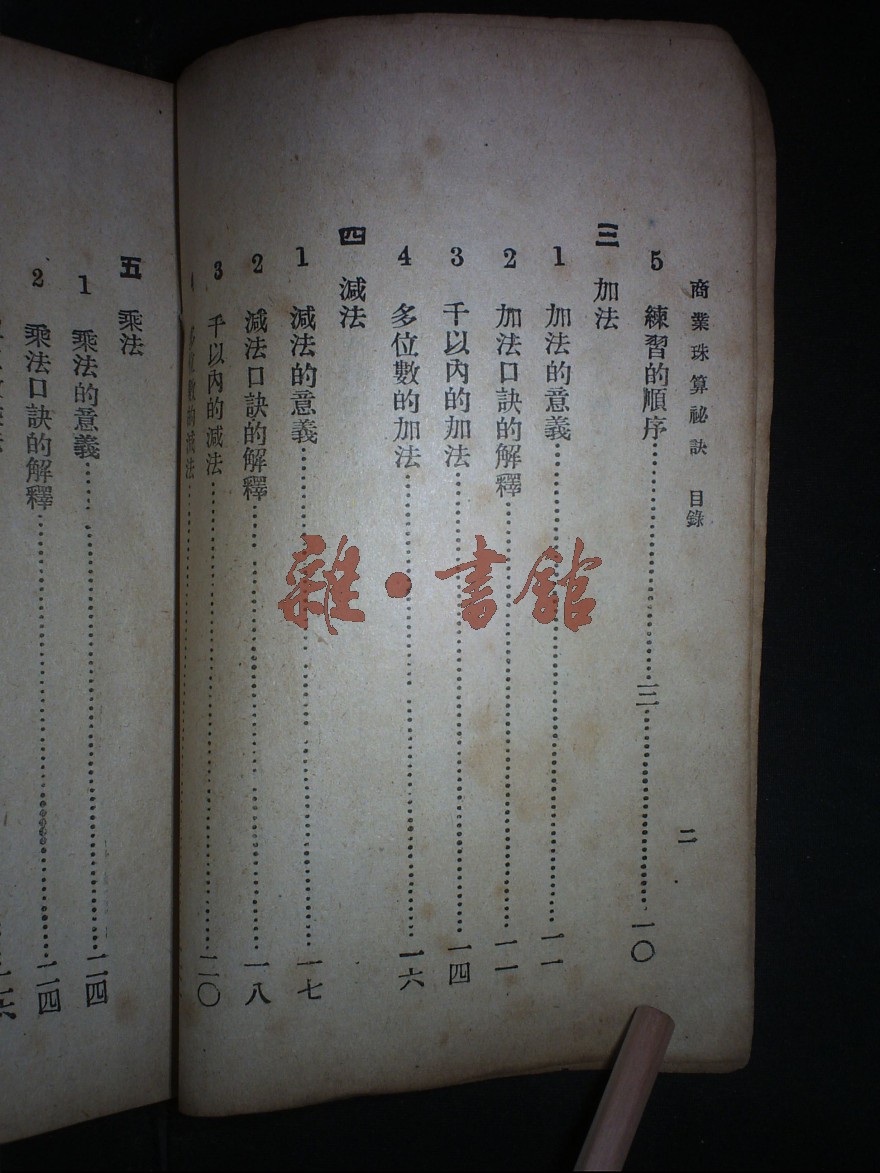 商業珠算祕訣 目錄
二
5 練習的順序……三……一〇
三 加法
1 加法的意義……一一
2 加法口訣的解釋……一一
3 千以內的加法……一四
4 多位數的加法……一六
四 減法
1 減法的意義……一七
2 減法口訣的解釋……一八
3 千以內的減法……二〇
多位數的減法……
五 乘法
1 乘法的意義……二四
2 乘法口訣的解釋……二四
雜·書館